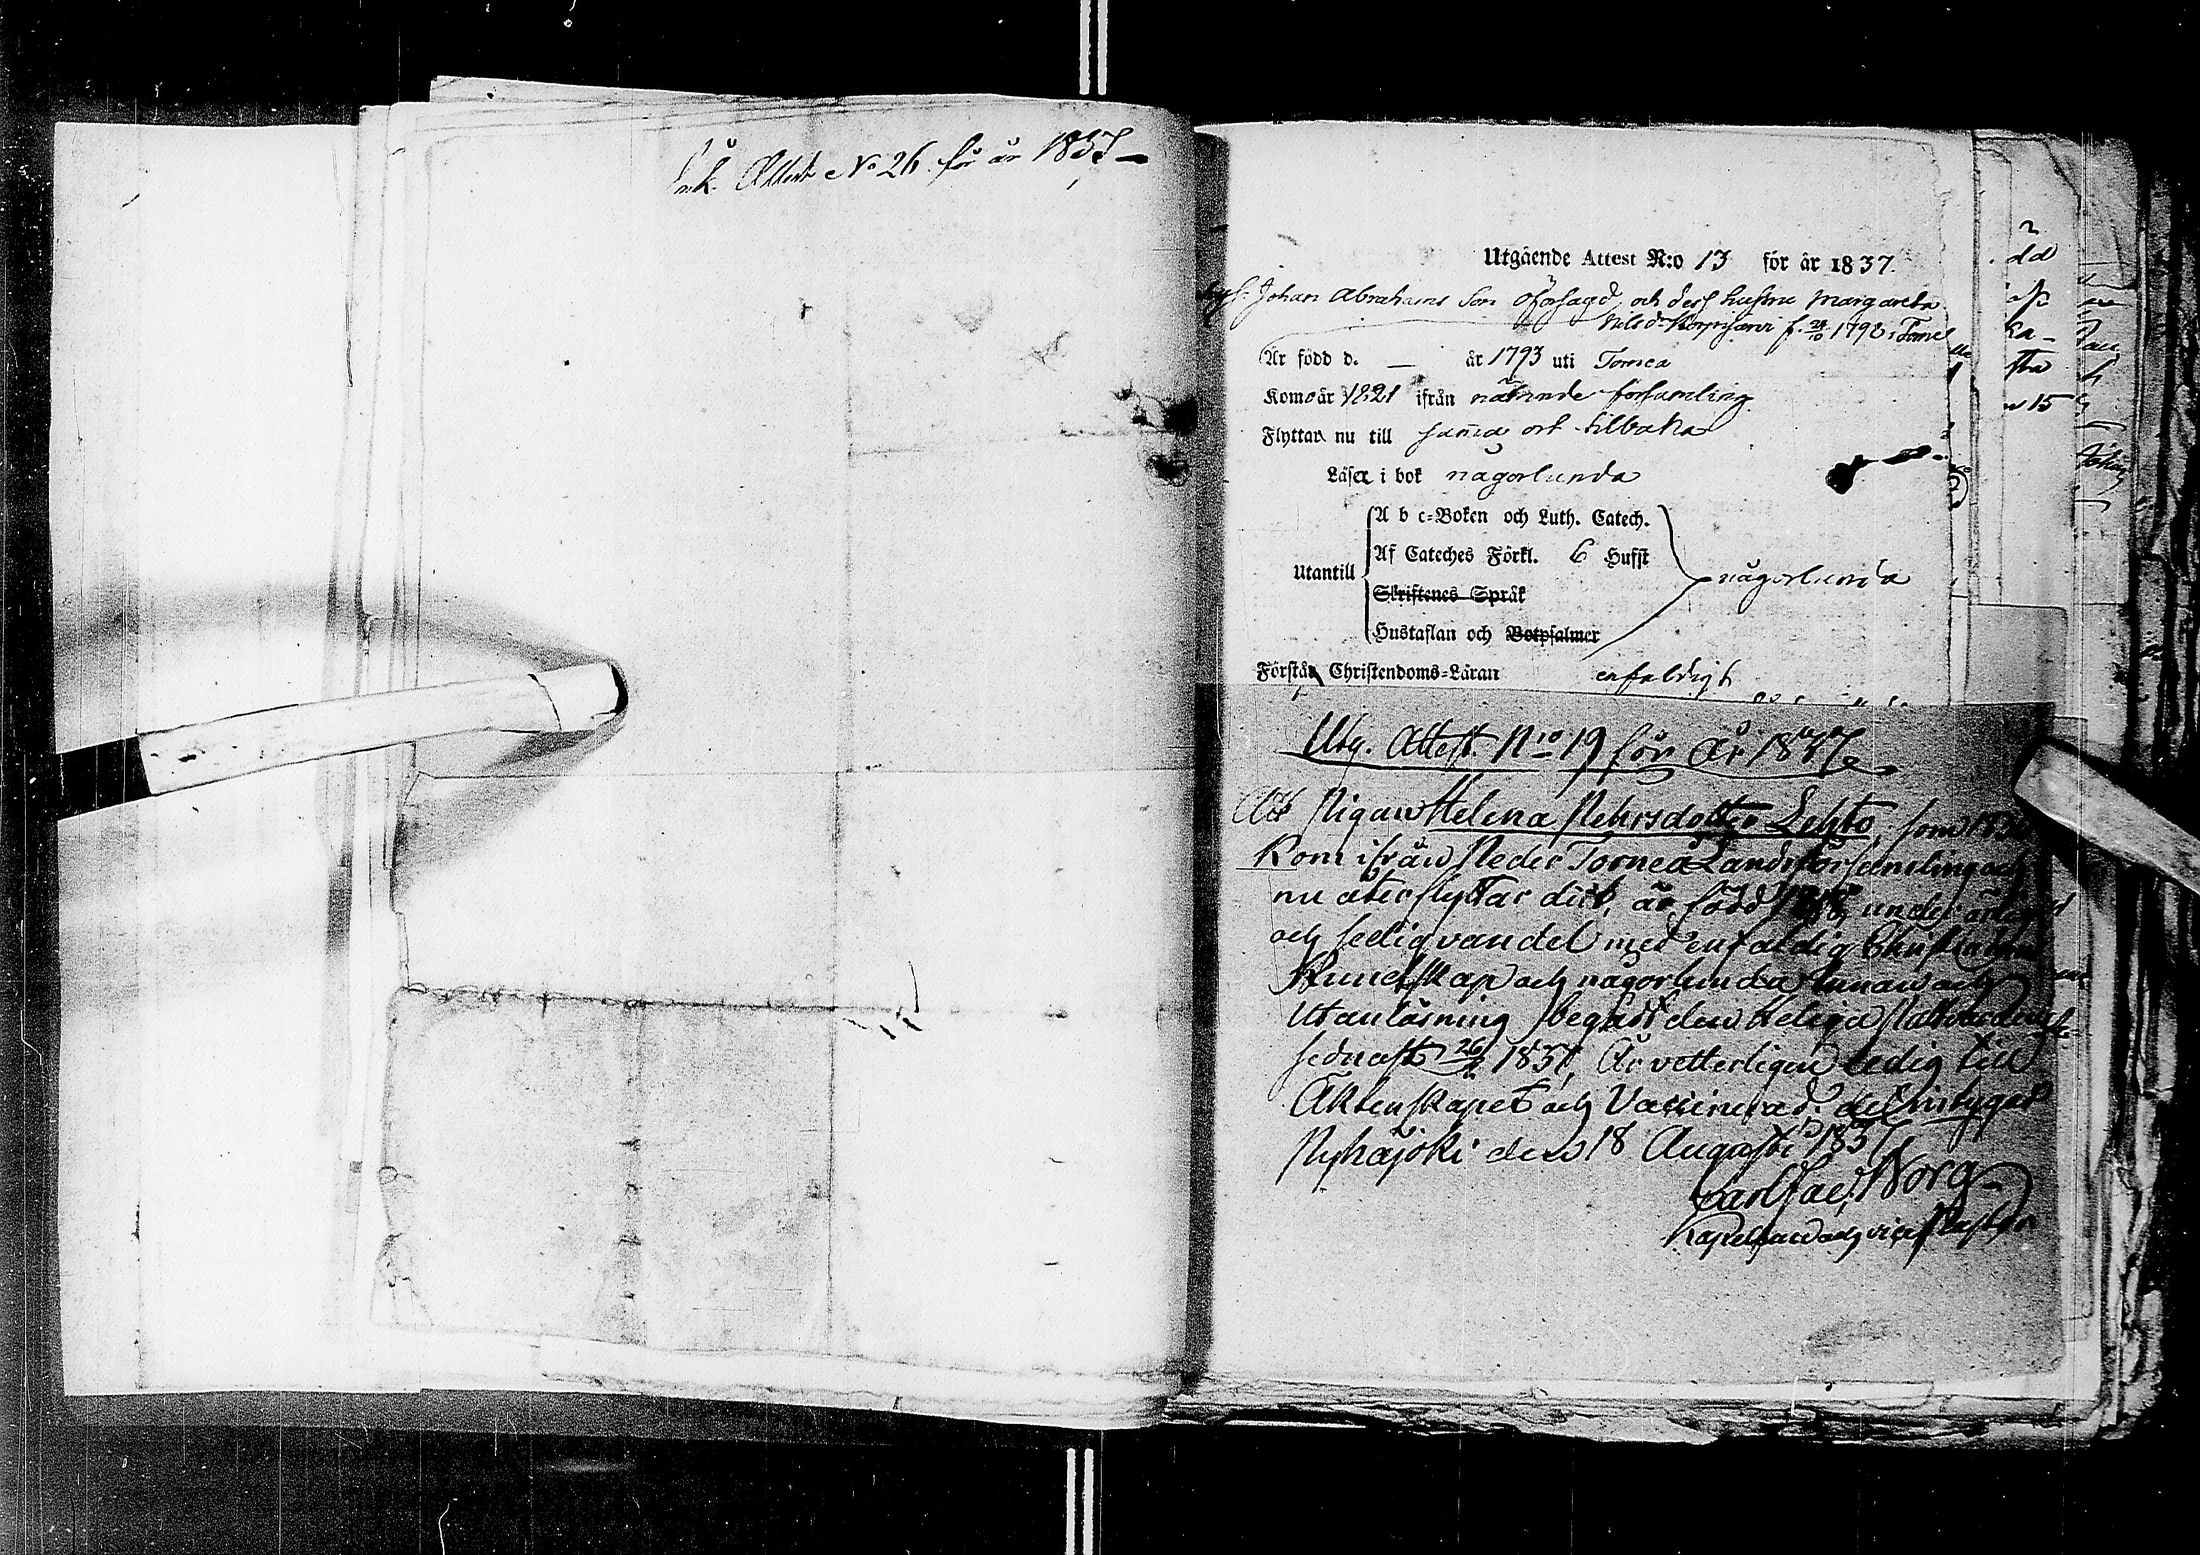 Ink. Attest No 26 för år 1837
Utgående Attest N:o 13 för år 1837.
Johan Abrahams Son Oförsagd, och dess hustru Margareta
Nilsd:r Korpijærvi f. 28/10 1798 i Torneå
Är född d. — år 1793 uti Torneå
Kom år 1821 ifrån nämnde församling
Flyttar nu till samma ort tillbaka
Läser i bok någorlunda
A b c-Boken och Luth. Catech.
Af Cateches Förkl. 6 Hufst
Utantill någorlunda
Skriftenes Språk
Hustaflan och Botpsalmer
Förstår Christendoms-Läran enfaldigt
Utg. Attest. N:ro 19 för År 1837
Att Pigan Helena Pehrsdotter Lehto, som
Kom ifrån Neder Torneå Landsförsamling och
nu återflyttar dit, är född under ärlig
och sedig vandel med enfaldig Christendoms
Kundskap och någorlunda Innan och
Utanläsning begått den Heliga Nattvarden
sednast 26/ 1837, Är vetterligen ledig till
Äktenskapet och Vaccinerad. det intygar
Pyhäjoki den 18 Augusti 1837.
Carl Jac. Borg
Kapellan och vice Pastor
dd
ka-
sta
15